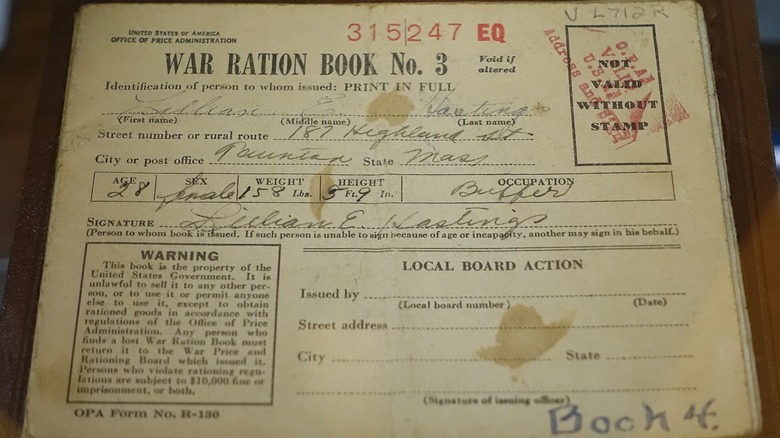 V L712R
UNITED STATES OF AMERICA
OFFICE OF PRICE ADMINISTRATION
315247 EQ
WAR RATION BOOK No. 3
Void if
altered
Identification of person to whom issued: PRINT IN FULL
Lillian E. Hastings
(First name) (Middle name) (Last name)
Street number or rural route 187 Highland St
City or post office Taunton State Mass
AGE SEX WEIGHT HEIGHT OCCUPATION
28 female 158 Lbs. 5 Ft. 9 In. Buffer
SIGNATURE Lillian E. Hastings
(Person to whom book is issued. If such person is unable to sign because of age or incapacity, another may sign in his behalf.)
NOT
VALID
WITHOUT
STAMP
WARNING
This book is the property of the
United States Government. It is
unlawful to sell it to any other per-
son, or to use it or permit anyone
else to use it, except to obtain
rationed goods in accordance with
regulations of the Office of Price
Administration. Any person who
finds a lost War Ration Book must
return it to the War Price and
Rationing Board which issued it.
Persons who violate rationing regu-
lations are subject to $10,000 fine or
imprisonment, or both.
OPA Form No. R-130
LOCAL BOARD ACTION
Issued by
(Local board number) (Date)
Street address
City State
(Signature of issuing officer)
Book 4.